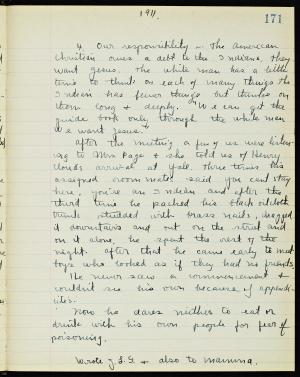 1911.
171
4. Our responsibility - The American
Christian owes a debt to the Indians, they
want Jesus. The white man has a little
time to think on each of many things the
Indian has fewer things but thinks on
them long & deeply. "We can get the
guide book only through the white man
We want Jesus."
After the meeting a few of us were listen-
ing to Mrs Page & she told us of Henry
Clouds arrival at Yale. Three times his
assigned room mates said you can't stay
here, you're an Indian and after the
third time he packed his black oilcloth
trunk studded with brass nails, dragged
it downstairs and out on the street and
on it alone, he spent the rest of the
night. After that he came early to meet
boys who looked as if they had no friends
He never saw a commencement &
couldn't see his own because of appendi-
citis.
Now he dares neither to eat or
drink with his own people for fear of
poisoning.
Wrote J.G. & also to mamma.